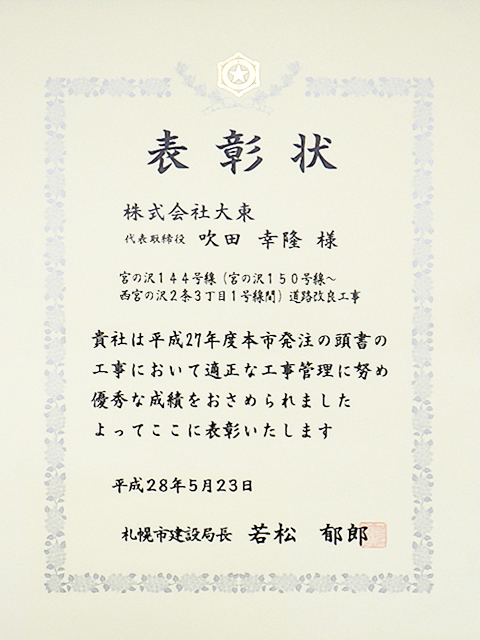 表彰状
株式会社大東
代表取締役 吹田 幸隆 様
宮の沢144号線（宮の沢150号線～
西宮の沢2条3丁目1号線間）道路改良工事
貴社は平成27年度本市発注の頭書の
工事において適正な工事管理に努め
優秀な成績をおさめられました
よってここに表彰いたします
平成28年5月23日
札幌市建設局長 若松 郁郎